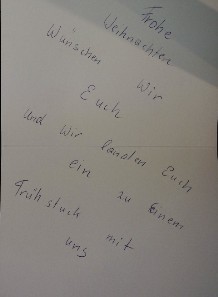 Frohe
Weihnachten
Wünschen Wir
Euch
und Wir landen Euch
ein zu Einem
Früh stuck mit
uns